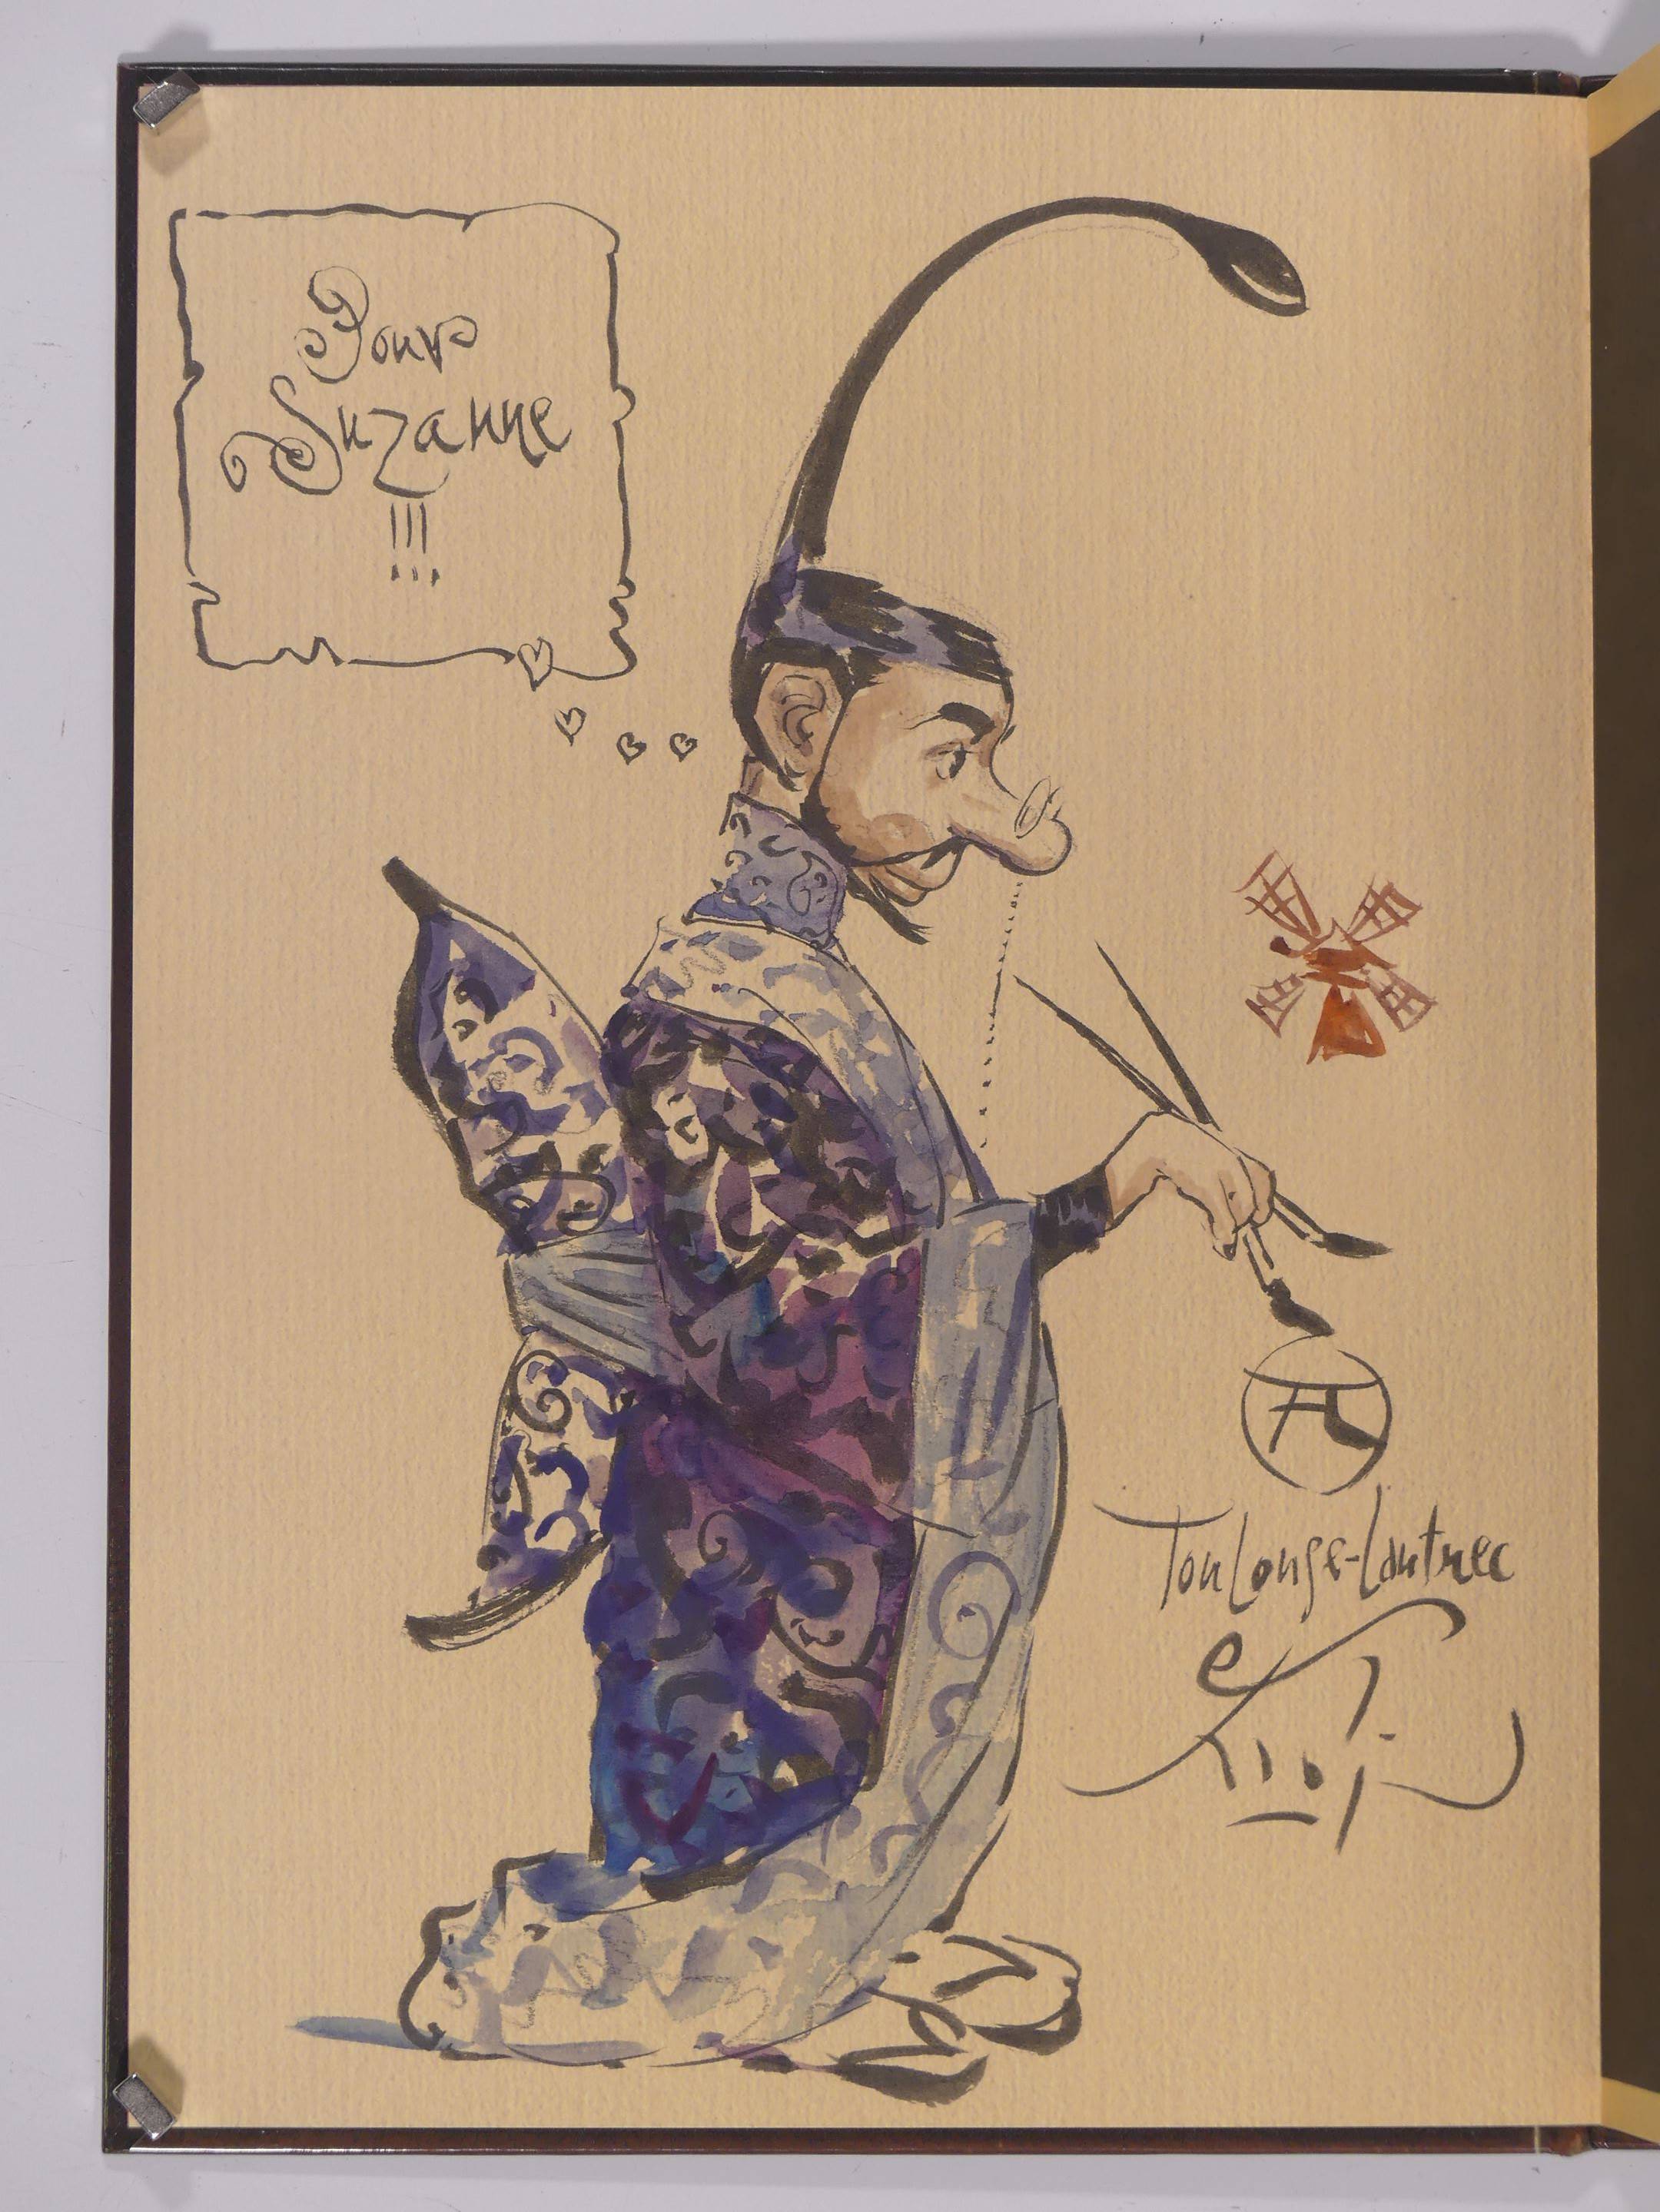 Pour
Suzanne
!!!
Toulouse-Lautrec